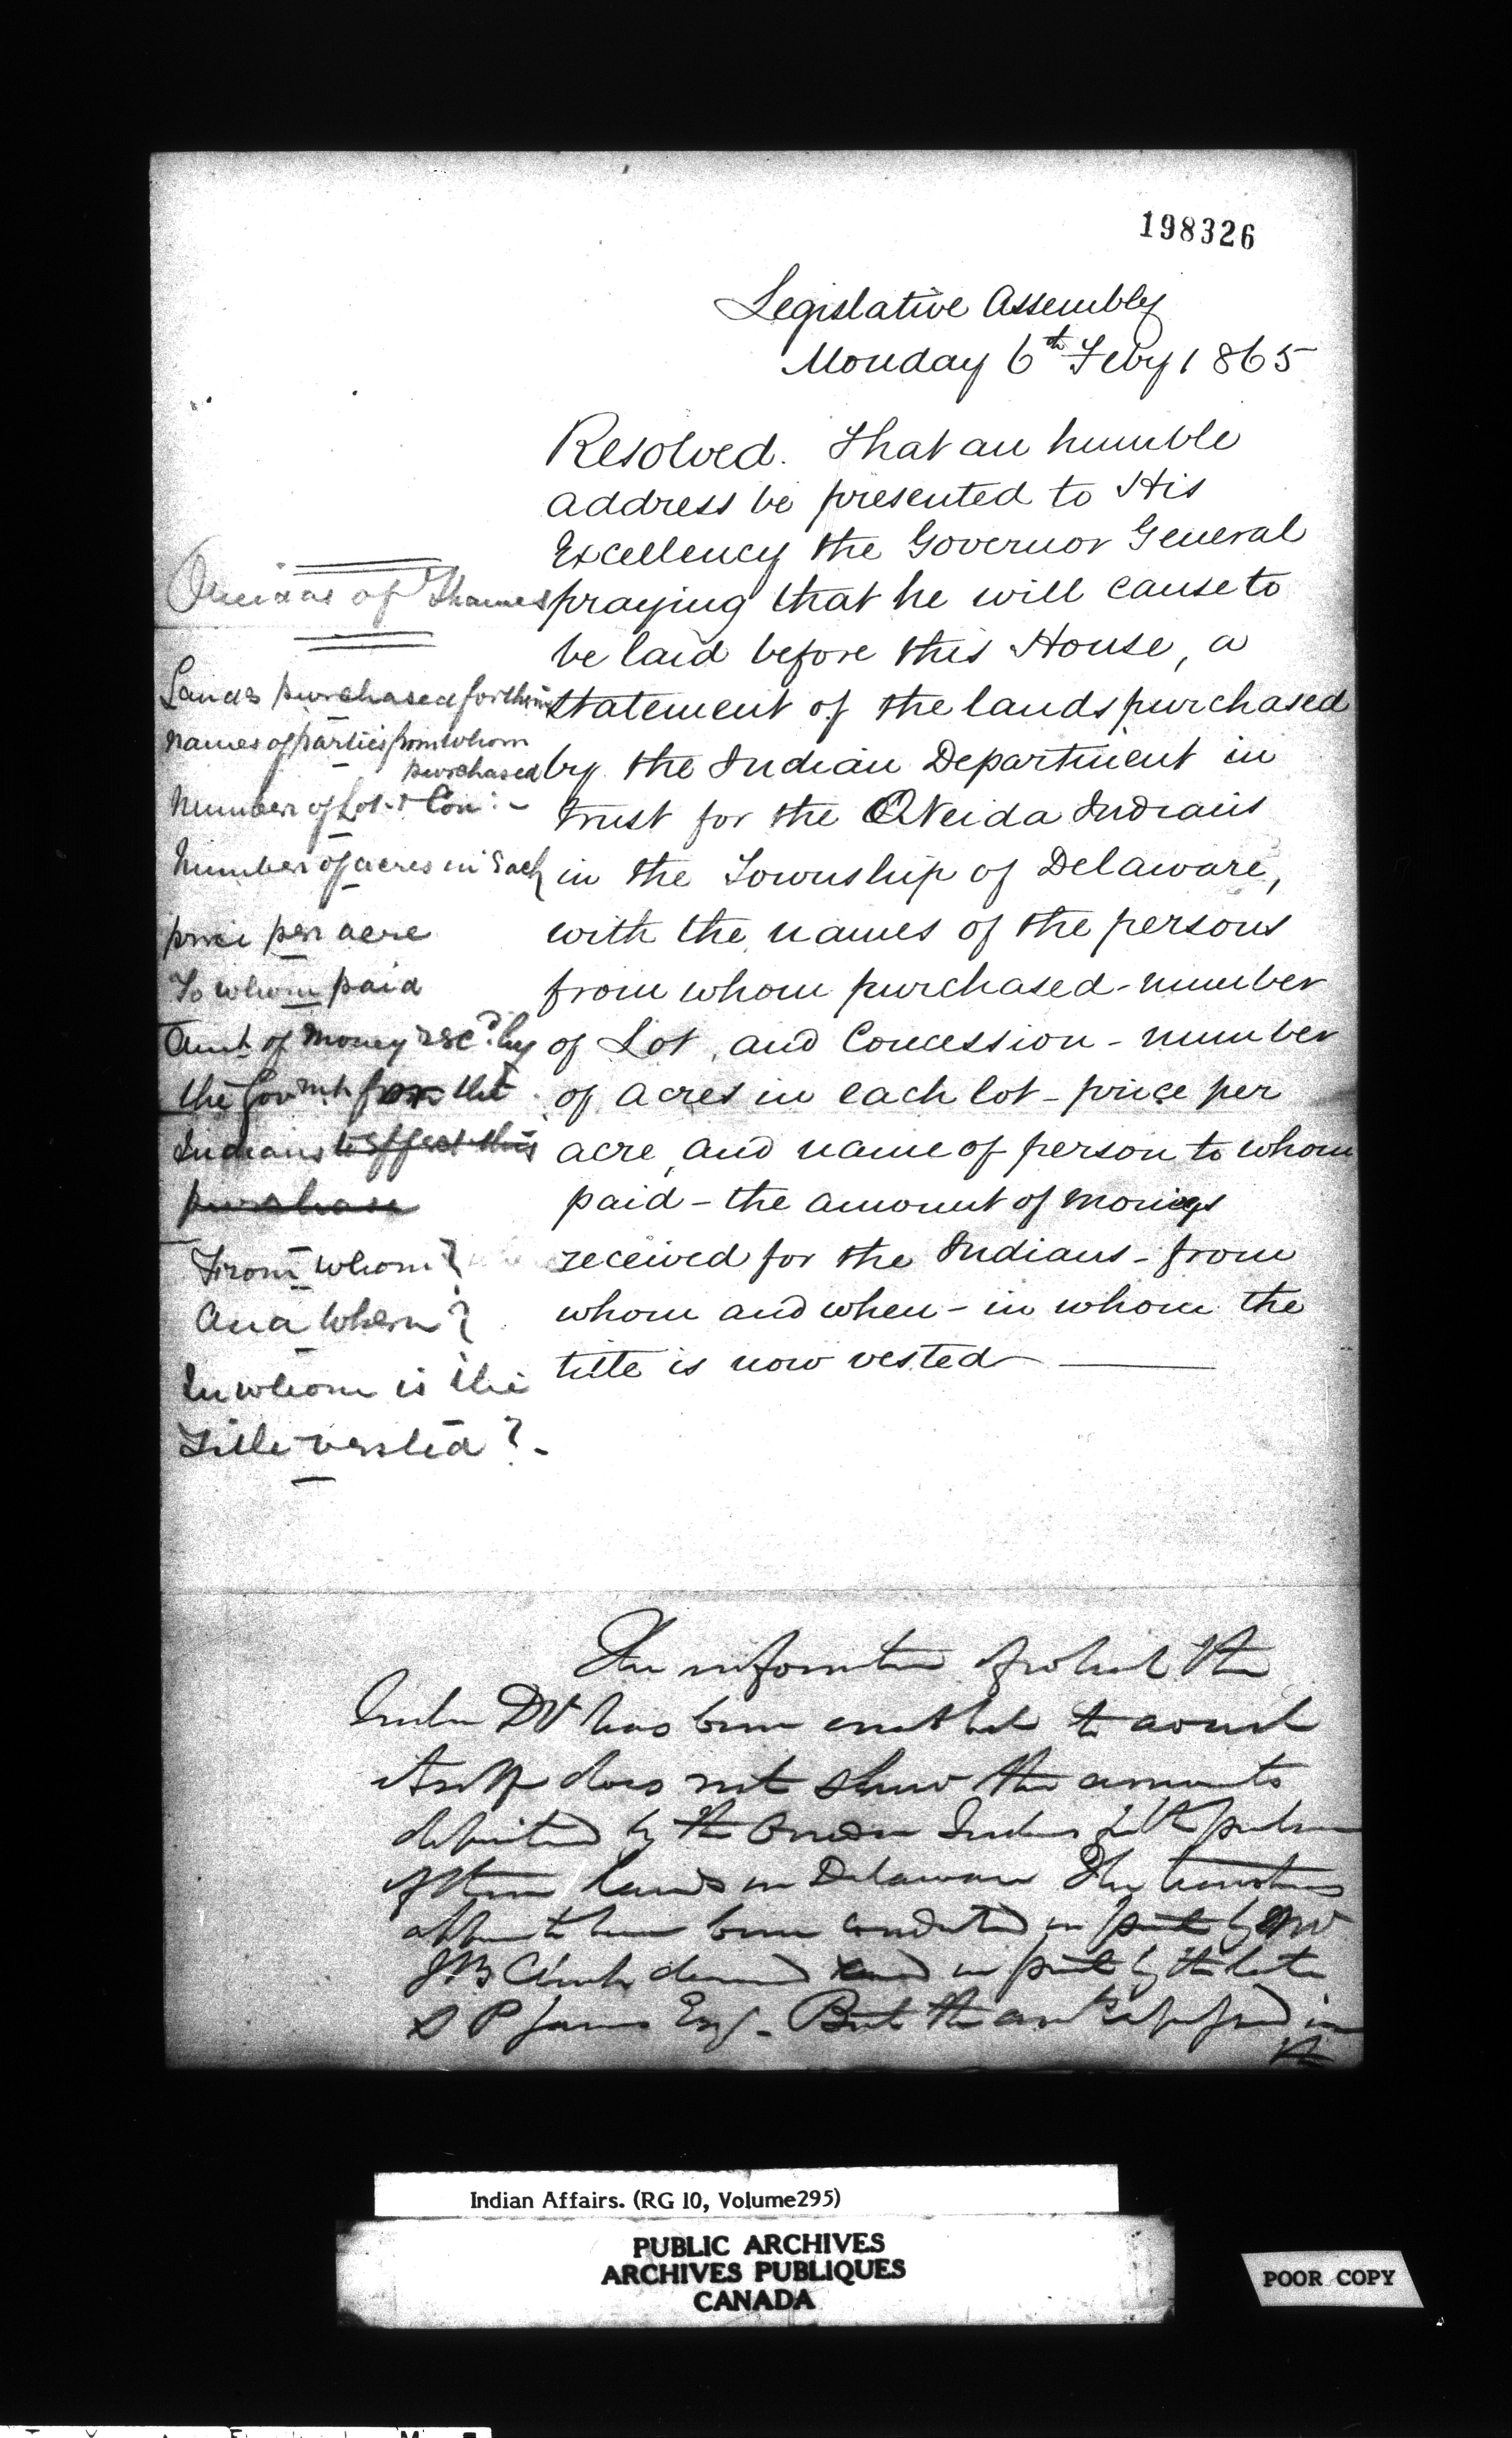 198326
Legislative Assembly
Monday 6th Feby 1865
Resolved. That an humble
address be presented to His
Excellency the Governor General
praying that he will cause to
be laid before this House, a
statement of the lands purchased
by the Indian Department in
trust for the ONeida Indians
in the Township of Delaware,
with the names of the persons
from whom purchased - number
of Lot, and Concession - number
of acres in each lot - price per
acre, and name of person to whom
paid - the amount of monies
received for the Indians - from
whom and when - in whom the
title is now vested
Oneidas of Thames
Lands purchased for them
Names of parties from whom
purchased
Number of Lot & Con: -
Number of acres in Each
price per acre
To whom paid
Amt of Money recd by
the Govmt the
Indians to effect this
purchase
From whom?
And When?
In whom is the
Title vested? -
The information of which the
Indian Dt has been enabled to avail
itself does not show the amounts
deposited by the Oneida Indians for the purchase
of their lands in Delaware The transactions
appear to have been conducted in part by Mr
J B Clench deceased and in part by the late
Esq - But the
the
Indian Affairs. (RG 10, Volume295)
PUBLIC ARCHIVES
ARCHIVES PUBLIQUES
CANADA
POOR COPY